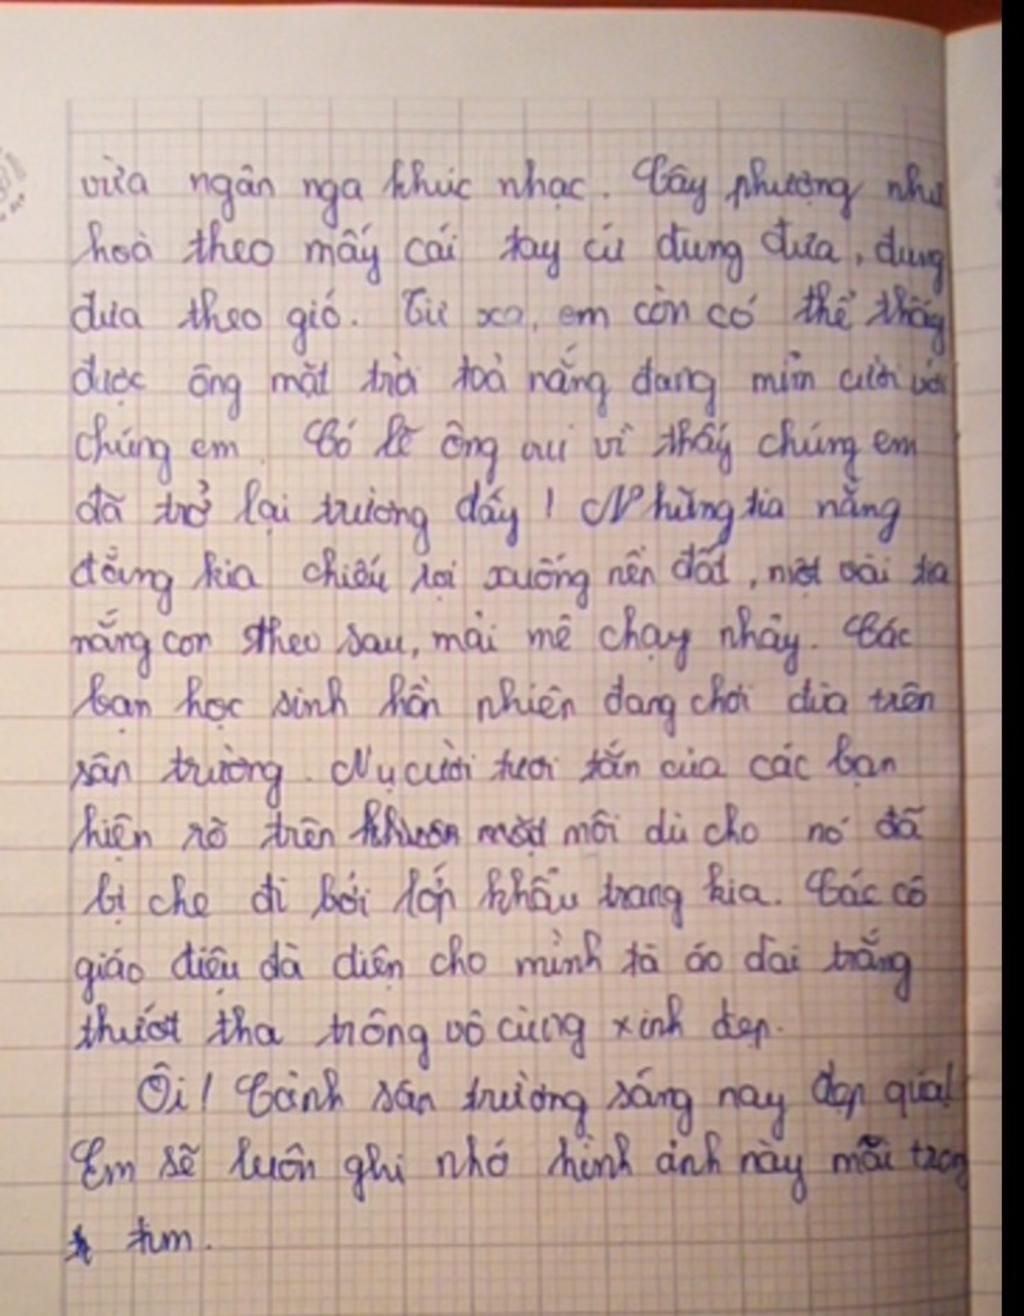 vừa ngân nga khúc nhạc. Cây phượng như
hoà theo mấy cái tay cứ đung đưa, đung
đưa theo gió. Từ xa, em còn có thể thấy
được ông mặt trời toả nắng đang mỉm cười với
chúng em. Có lẽ ông vui vì thấy chúng em
đã trở lại trường đấy! Những tia nắng
đằng kia chiếu rọi xuống nền đất, một vài tia
nắng con theo sau, mải mê chạy nhảy. Các
bạn học sinh hồn nhiên đang chơi đùa trên
sân trường. Nụ cười tươi tắn của các bạn
hiện rõ trên khuôn mặt môi dù cho nó đã
bị che đi bởi lớp khẩu trang kia. Các cô
giáo điệu đà diện cho mình tà áo dài trắng
thướt tha trông vô cùng xinh đẹp.
Ôi! Cảnh sân trường sáng nay đẹp quá!
Em sẽ luôn ghi nhớ hình ảnh này mãi trong
tim.